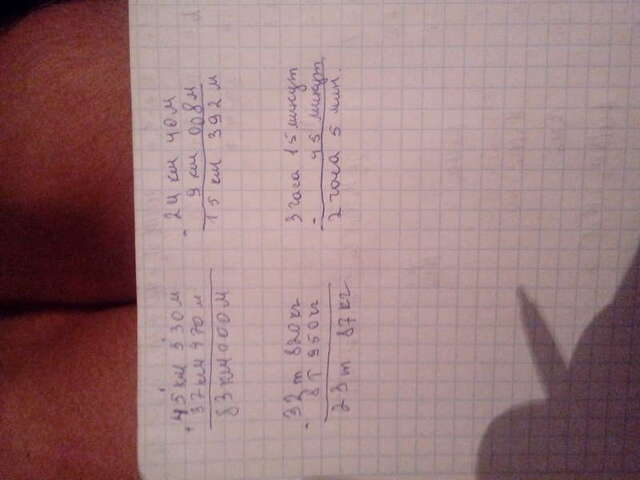 45 км 530 м
+ 37 км 470 м
83 км 000 м
24 км 40 м
- 9 км 008 м
15 км 392 м
32 т 820 кг
- 8 т 950 кг
23 т 87 кг
3 часа 15 минут
- 45 минут
2 часа 5 мин.